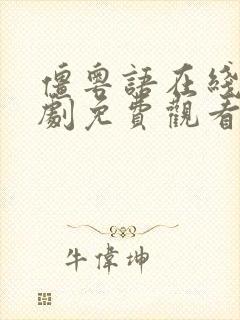 僵粵語在綫
劇免費觀看
牛偉坤